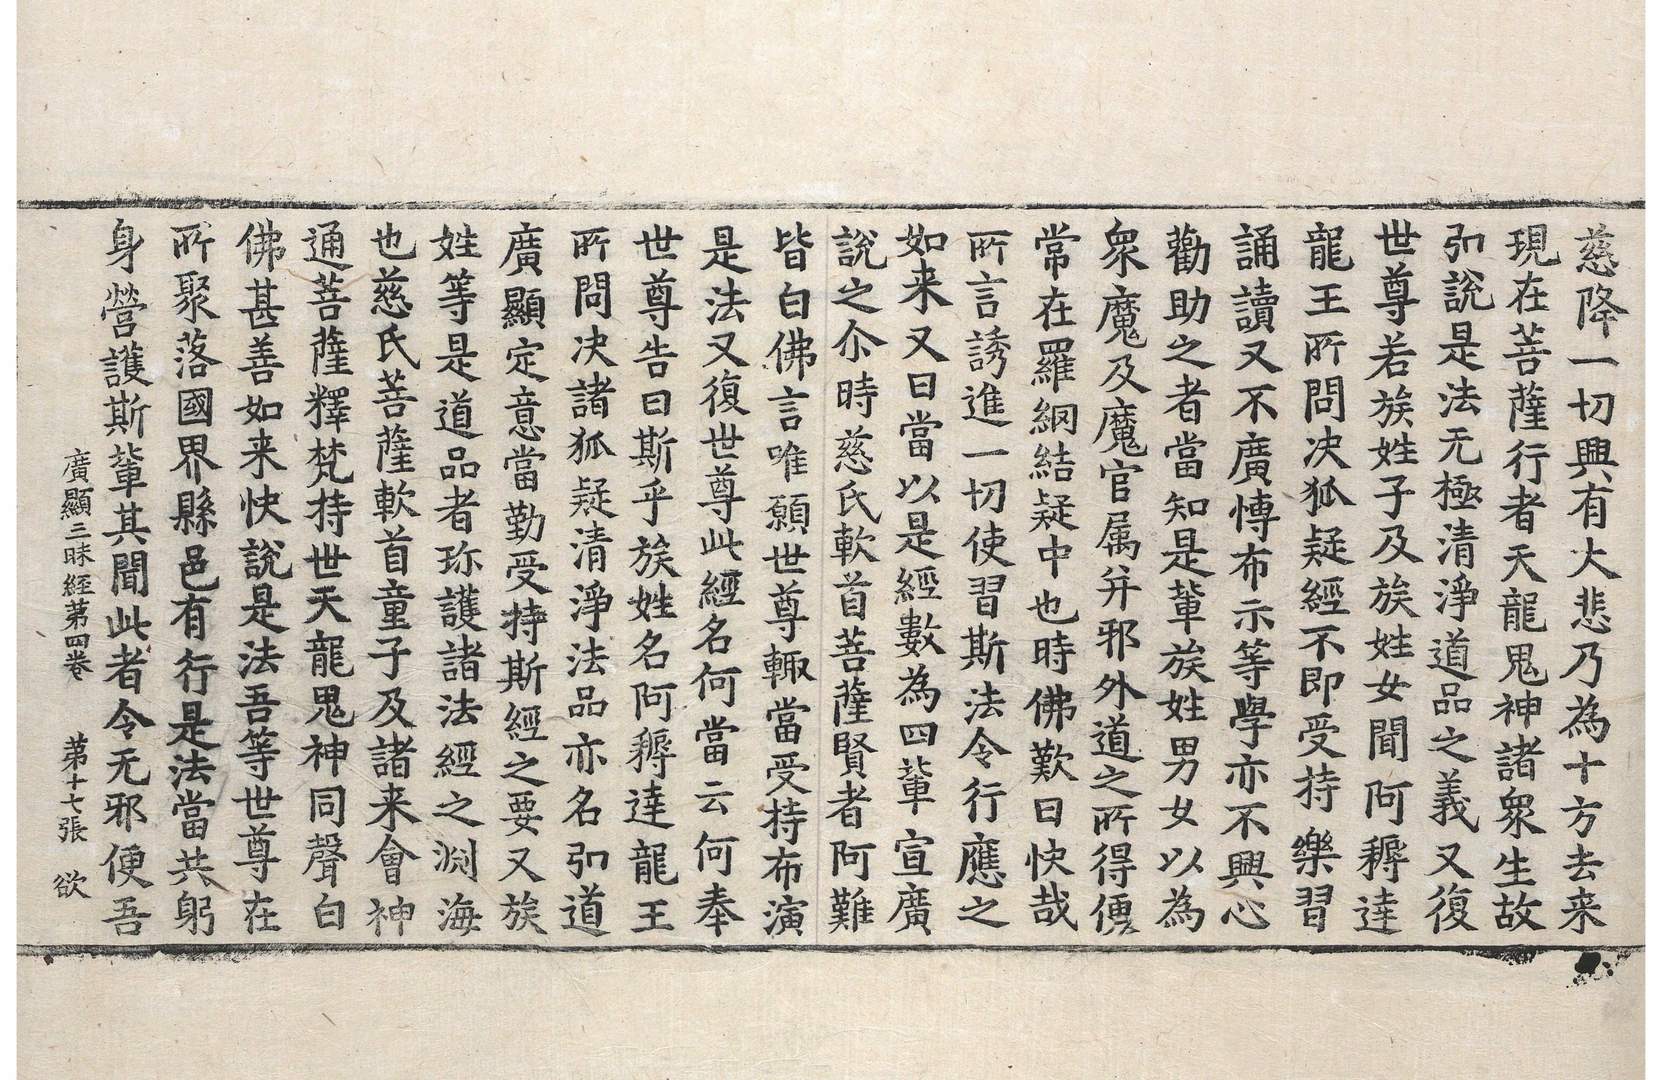 慈降一切興有大悲乃為十方去来
現在菩薩行者天龍鬼神諸衆生故
弘說是法无極清淨道品之義又復
世尊若族姓子及族姓女聞阿耨達
龍王所問决狐疑經不即受持樂習
誦讀又不廣愽布示等學亦不興心
勸助之者當知是輩族姓男女以為
衆魔及魔官属并邪外道之所得便
常在羅網結疑中也時佛歎曰快哉
所言誘進一切使習斯法令行應之
如来又曰當以是經數為四輩宣廣
說之尒時慈氏軟首菩薩賢者阿難
皆白佛言唯願世尊輙當受持布演
是法又復世尊此經名何當云何奉
世尊告曰斯乎族姓名阿耨達龍王
所問决諸狐疑清淨法品亦名弘道
廣顯定意當勤受持斯經之要又族
姓等是道品者珎護諸法經之渕海
也慈氏菩薩軟首童子及諸来會神
通菩薩釋梵持世天龍鬼神同聲白
佛甚善如来快說是法吾等世尊在
所聚落國界縣邑有行是法當共躬
身營護斯輩其聞此者令无邪便吾
廣顯三昧經第四卷　第十七張　欲